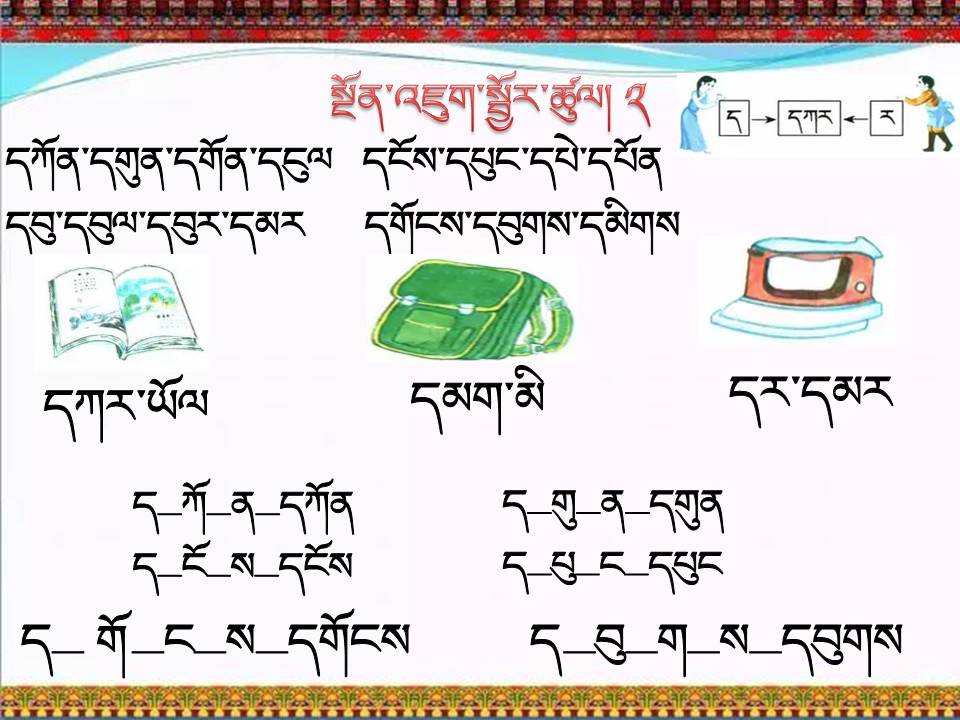 སྔོན་འཇུག་སྦྱོར་ཚུལ། ༢
ད དཀར ར
དཀོན་དགུན་དགོན་དངུལ དངོས་དཔུང་དཔེ་དཔོན
དབུ་དབུལ་དབུར་དམར དགོངས་དབུགས་དམིགས
དཀར་ཡོལ དམག་མི དར་དམར
ད_ཀོ_ན_དཀོན ད_གུ_ན_དགུན
ད_ངོ_ས_དངོས ད_པུ_ང_དཔུང
ད_ གོ_ང_ས_དགོངས ད_བུ_ག_ས_དབུགས